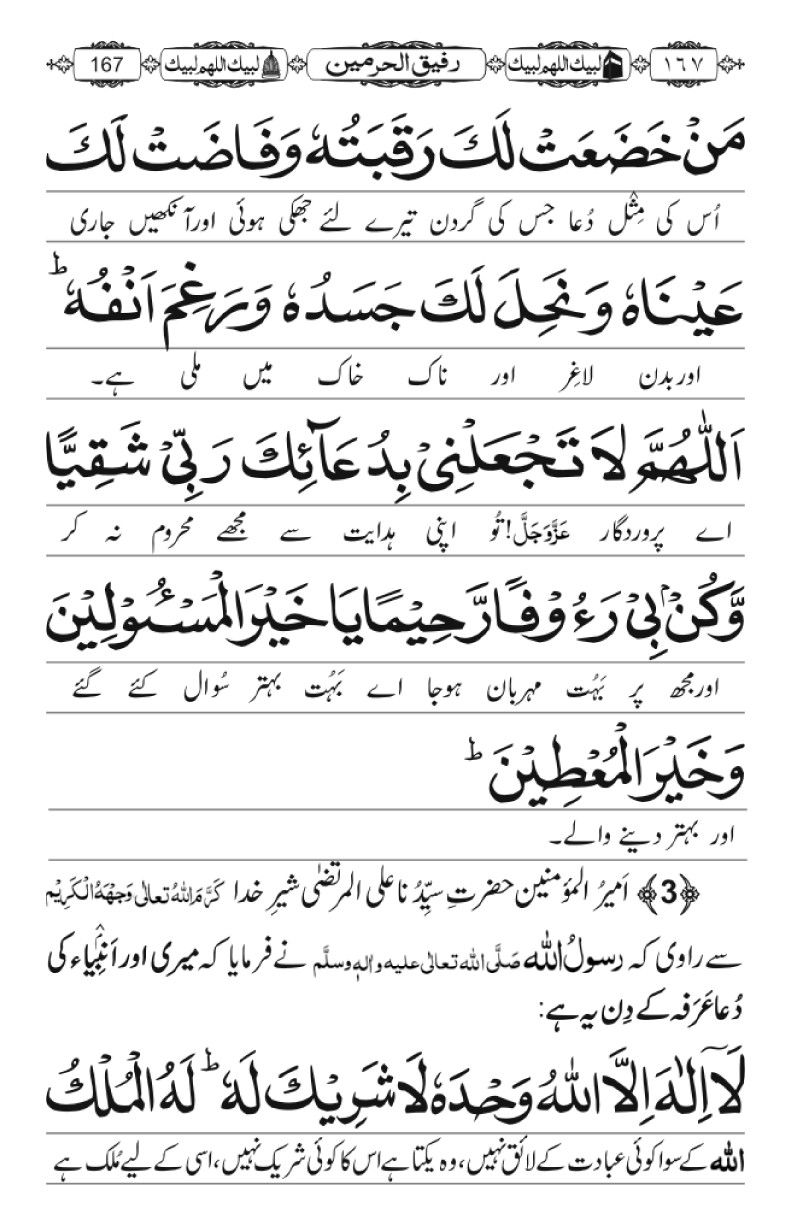 ١٦٧ لبيك اللهم لبيك رفیق الحرمین لبيك اللهم لبيك 167
مَنْ خَضَعَتْ لَكَ رَقَبَتُهٗ وَفَاضَتْ لَكَ
اُس کی مِثْل دُعا جس کی گردن تیرے لئے جھکی ہوئی اور آنکھیں جاری
عَيْنَاهُ وَنَحِلَ لَكَ جَسَدُهٗ وَرَغِمَ اَنْفُهٗ ؕ
اور بدن لاغِر اور ناک خاک میں ملی ہے۔
اَللّٰهُمَّ لَا تَجْعَلْنِیْ بِدُعَآئِكَ رَبِّیْ شَقِيًّا
اے پروردگار عَزَّوَجَلَّ! تُو اپنی ہدایت سے مجھے محروم نہ کر
وَّكُنْۢ بِیْ رَءُوْفًا رَّحِيْمًا يَا خَيْرَ الْمَسْئُوْلِيْنَ
اور مجھ پر بَہُت مہربان ہوجا اے بَہُت بہتر سُوال کئے گئے
وَخَيْرَ الْمُعْطِيْنَ ؕ
اور بہتر دینے والے۔
﴿3﴾ اَمیرُ المؤمنین حضرتِ سیِّدُنا علی المرتضٰی شیرِ خدا كَرَّمَ اللهُ تعالٰی وَجْهَهُ الْكَرِيْم
سے راوی کہ رسولُ اللّٰه صَلَّی اللہ تعالٰی علیہ واٰلہٖ وسلَّم نے فرمایا کہ میری اور اَنبِیاء کی
دُعا عَرَفہ کے دِن یہ ہے:
لَآ اِلٰهَ اِلَّا اللّٰهُ وَحْدَهٗ لَا شَرِيْكَ لَهٗ ؕ لَهُ الْمُلْكُ
اللّٰه کے سوا کوئی عبادت کے لائق نہیں، وہ یکتا ہے اس کا کوئی شریک نہیں، اسی کے لیے مُلک ہے